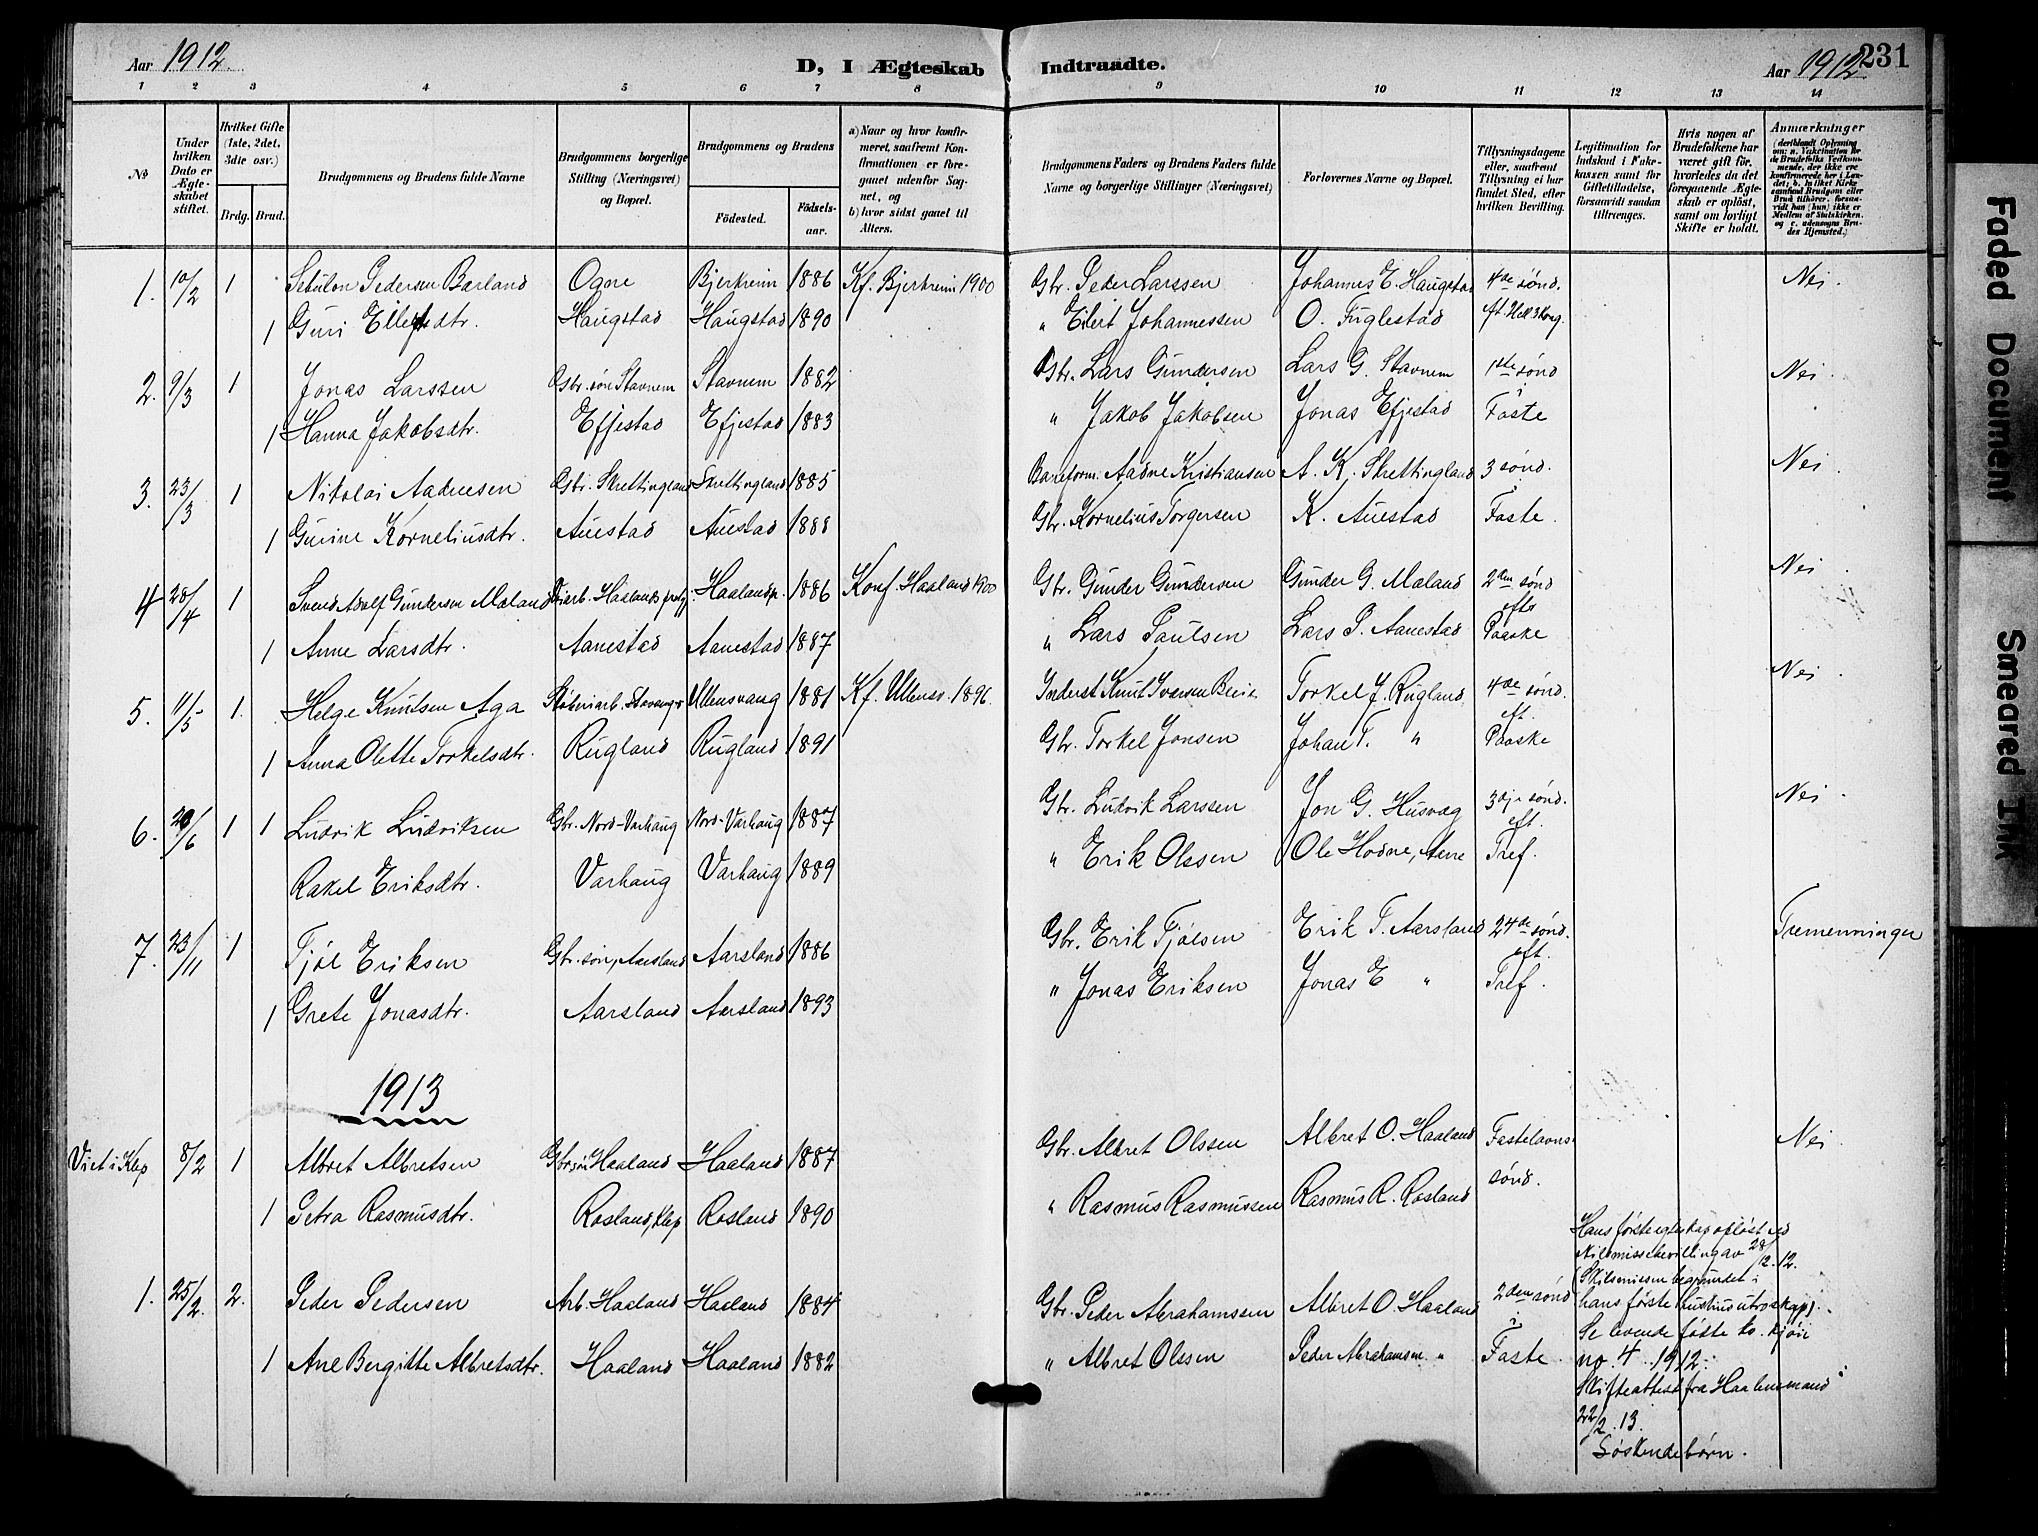 Aar 1912.
D, I Ægteskab Indtraadte.
Aar 1912 231
1 2 3 4 5 6 7 8 9 10 11 12 13 14
No
Under hvilken Dato er Ægteskabet stiftet.
Hvilket Gifte (1ste, 2det, 3die osv.)
Brdg. Brud.
Brudgommens og Brudens fulde Navne
Brudgommens borgerlige Stilling (Næringsvei) og Bopæl.
Brudgommens og Brudens
Fødested.
Fødselsaar.
a) Naar og hvor konfirmeret, saafremt Konfirmationen er foregaaet udenfor Sognet, og
b) hvor sidst gaaet til Alters.
Brudgommens Faders og Brudens Faders fulde Navne og borgerlige Stillinger (Næringsvei)
Forlovernes Navne og Bopæl.
Tillysningsdagene eller, saafremt Tillysning ei har fundet Sted, efter hvilken Bevilling.
Legitimation for Indskud i Enkekassen samt for Giftetilladelse, forsaavidt saadan tiltrænges.
Hvis nogen af Brudefolkene har været gift før, hvorledes da det foregaaende Ægteskab er opløst, samt om lovligt Skifte er holdt.
Anmærkninger (deriblandt Oplysning om: a. Vaccination for de Brudefolks Vedkommende, der ikke ere konfirmerede her i Landet; b. hvilket Kirkesamfund Brudgom eller Brud tilhører, forsaavidt han (hun) ikke er Medlem af Statskirken, og c. udensogns Brudes Hjemsted.)
1. 10/2 1 Sebulon Pedersen Bærland Ogne Bjerkreim 1886 Kf. Bjerkreim 1900 Gbr. Peder Larssen Johannes E. Haugstad 4de sønd. Nei.
1 Guri Ellefsdtr. Haugstad Haugstad 1890 " Eilert Johannessen O. Fuglestad eft. Hell 3 kong.
2. 9/3 1 Jonas Larssen Gbr. søn Stavnem Stavnem 1882 Gbr. Lars Gundersen Lars G. Stavnem 1ste sønd i Nei.
1 Hanna Jakobsdtr. Efjestad Efjestad 1883 " Jakob Jakobsen Jonas Efjestad Faste
3. 23/3 1 Nikolai Aadnesen Gbr. Skrettingland Skrettingland 1885 Baneform. Aadne Kristiansen A. K. Skrettingland 3 sønd. i Nei.
1 Gurine Korneliusdtr. Auestad Auestad 1888 Gbr. Kornelius Torgersen K. Auestad Faste.
4 28/4 1 Svend Adolf Gundersen Mæland Haalands prstgj. Haalandp. 1886 Konf. Haaland 1900 Gbr. Gunder Gundersen Gunder G. Mæland 2den sønd Nei.
1 Anne Larsdtr. Aanestad Aanestad 1887 " Lars Paulsen Lars P. Aanestad eftr Paaske
5. 11/5 1. Helge Knutsen Aga Støberiarb. Stavanger Ullensvang 1881 Kf. Ullensv. 1896. Inderst Knut Iversen Torkel J. Rugland 4de sønd. Nei.
1 Anna Olette Torkelsdtr. Rugland Rugland 1891 Gbr. Torkel Jonsen Johan T. " eft. Paaske
6. 20/6 1 1 Ludvik Ludviksen Gbr. Nord-Varhaug Nord-Varhaug 1887 Gbr. Ludvik Larssen Jon G. Husvæg 3dje sønd. Nei.
Rakel Eriksdtr. Varhaug Varhaug 1889 " Erik Olssen Ole Hodne, Aarre eft. Tref.
7. 23/11 1 Tjøl Eriksen Gbr. søn, Aarsland Aarsland 1886 Gbr. Erik Tjølsen Erik T. Aarsland 24de sønd. Tremenninger
1 Grete Jonasdtr. Aarsland Aarsland 1893 " Jonas Eriksen Jonas E " eft. Tref.
1913
Viet i Klep 8/2 1 Albret Albretsen Gbrsøn Haaland Haaland 1887 Gbr. Albret Olssen Albret O. Haaland Fastelavns Nei.
1 Petra Rasmusdtr. Rosland, Klep Rosland 1890 " Rasmus Rasmussen Rasmus R. Rosland sønd.
Hans første egteskap opløst ved
skilsmissebevilling av 28/12.12.
(Skilsmissen begrundet i
1. 25/2. 2. Peder Pedersen Arb. Haaland Haaland 1884 Gbr. Peder Abrahamssen Albret O. Haaland 2den sønd i hans første hustrus utroskap).
Se levende fødte kv. kjøn
1 Ane Bergitte Albretsdtr. Haaland Haaland 1882 " Albret Olssen Peder Abrahamsen " Faste. no. 4. 1912.
Skifteattest fra Haa lensmand
22/2.13.
Søskendebørn.
Faded Document
Smeared Ink